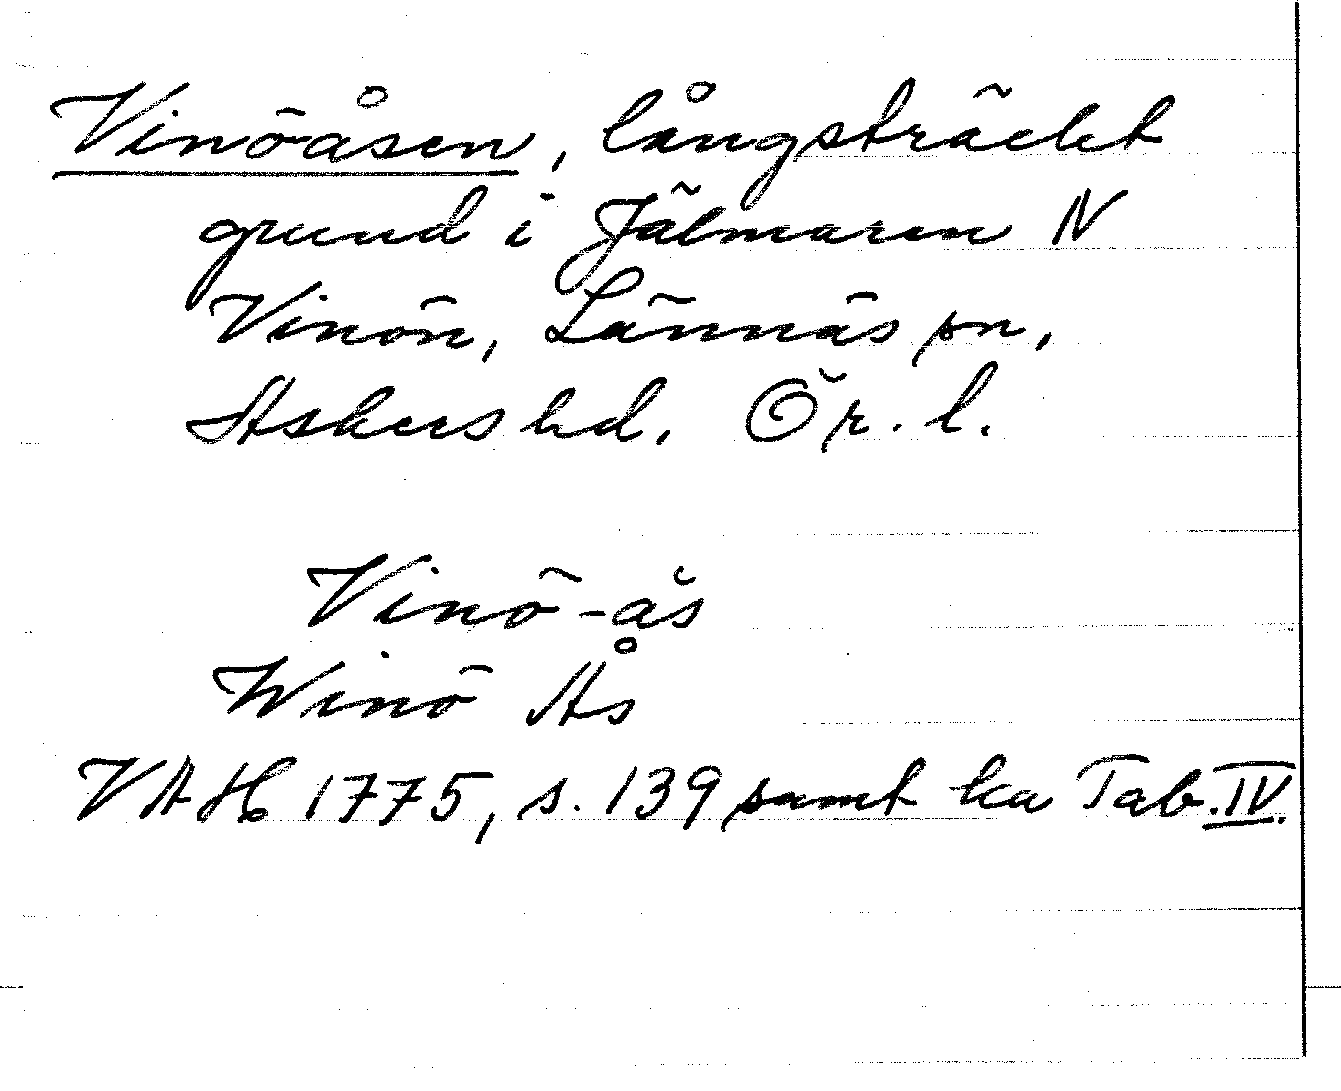 Vinöåsen, långsträckt
grund i Jälmaren N
Vinön, Lännäs sn,
Askers hd. Ör. l.
Vinö-ås
Winö Ås
VAH 1775, s. 139 samt ka Tab. IV.